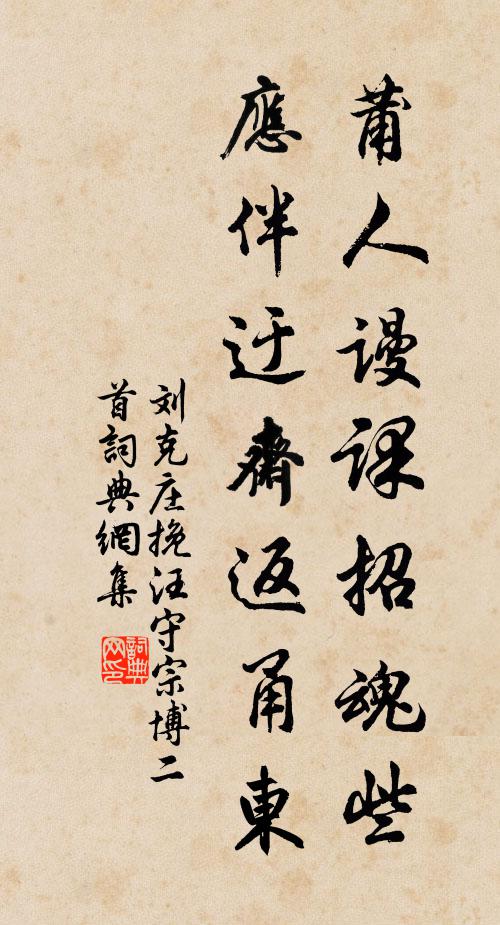 莆人谩课招魂些
應伴迂齋返甬東
刘克庄挽汪守宗博二
首詞典網集
詞典网印